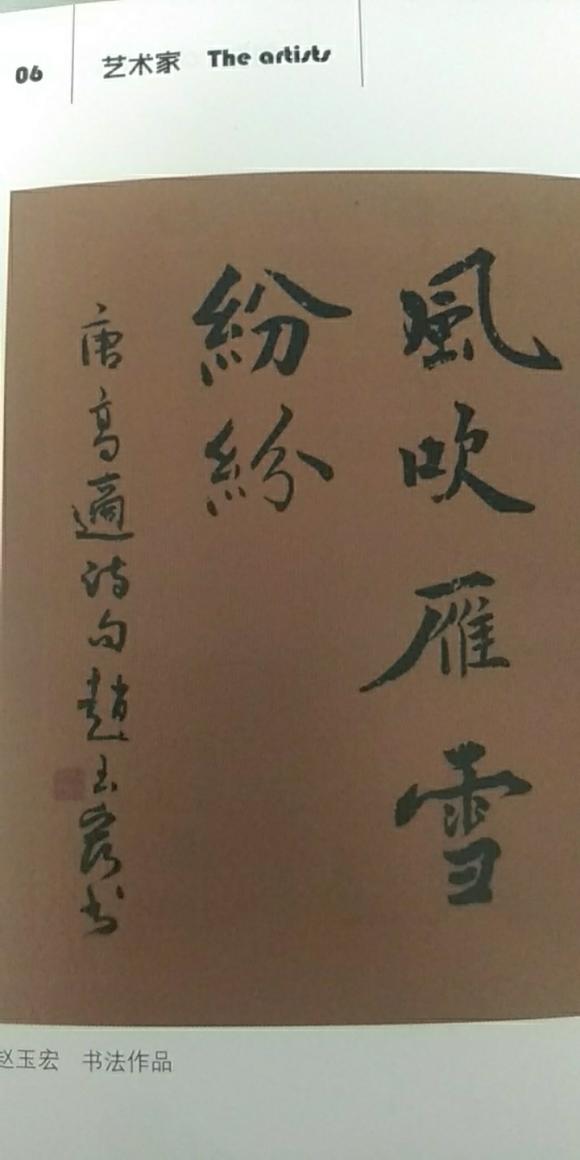 06 艺术家 The artists
風吹雁雪
紛紛
唐高適诗句趙玉宏书
赵玉宏 书法作品